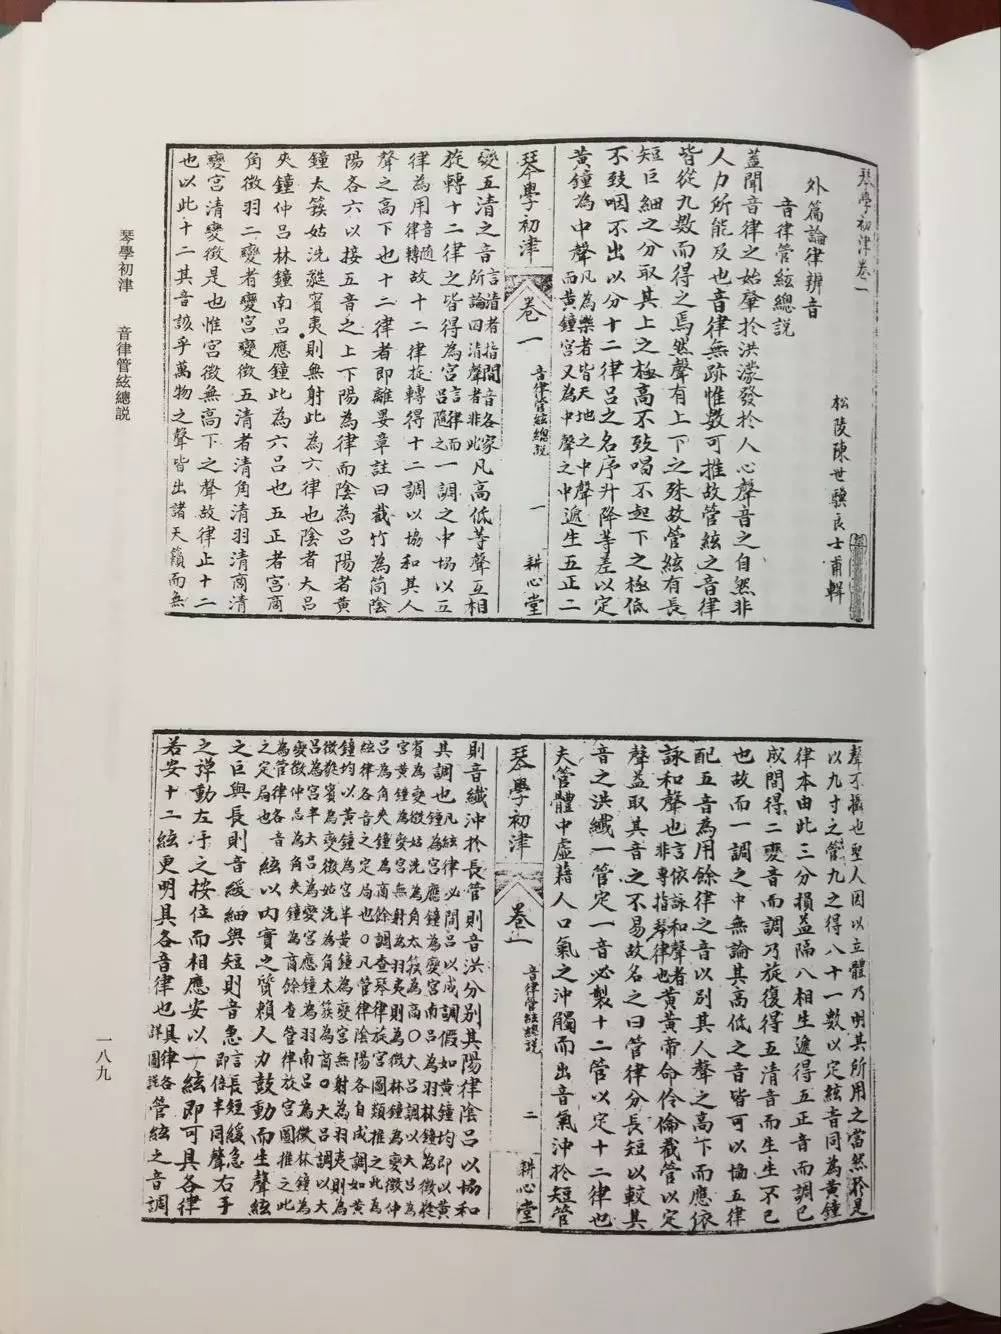 琴學初津卷一
松陵陳世驥良士甫輯
外篇論律辨音
音律管絃總說
蓋聞音律之始肇於洪濛發於人心聲音之自然非
人力所能及也音律無跡惟數可推故管絃之音律
皆從九數而得之焉然聲有上下之殊故管絃有長
短巨細之分取其上之極高不致唱不起下之極低
不致咽不出以分十二律呂之名序升降等差以定
黃鐘為中聲凡為樂者皆天地之中聲而黃鐘宮又為中聲之中遞生五正二
琴學初津 卷一 音律管絃總說 一 耕心堂
變五清之音言清者指間音各家所論曰清聲者非此凡高低等聲互相
旋轉十二律之皆得為宮言律而呂隨之一調之中協以五
律為用音隨律轉故十二律旋轉得十二調以協和其人
聲之高下也十二律者即離婁章註曰截竹為筒陰
陽各六以接五音之上下陽為律而陰為呂陽者黃
鐘太簇姑洗蕤賓夷則無射此為六律也陰者大呂
夾鐘仲呂林鐘南呂應鐘此為六呂也五正者宮商
角徵羽二變者變宮變徵五清者清角清羽清商清
變宮清變徵是也惟宮徵無高下之聲故律止十二
也以此十二其音該乎萬物之聲皆出諸天籟而無
聲不攝也聖人因以立體乃明其所用之當然於是
以九寸之管九之得八十一數以定絃音同為黃鐘
律本由此三分損益隔八相生遞得五正音而調已
成間得二變音而調乃旋復得五清音而生生不已
也故而一調之中無論其高低之音皆可以協五律
配五音為用餘律之音以別其人聲之高下而應依
詠和聲也言依詠和聲者非專指琴律也黃帝命伶倫截管以定
聲蓋取其音之不易故名之曰管律分長短以較其
音之洪纖一管定一音必製十二管以定十二律也
夫管體中虛藉人口氣之沖觸而出音氣沖於短管
琴學初津 卷一 音律管絃總說 二 耕心堂
則音纖沖於長管則音洪分別其陽律陰呂以協和
其調也凡絃律必間呂以成調假如黃鐘均即以黃
鐘為宮應鐘為變宮南呂為羽林鐘為徵蕤
賓為變徵姑洗為角太簇為商○大呂調以大呂為
宮黃鐘為變宮無射為羽夷則為徵林鐘為變徵仲
呂為角夾鐘為商餘調查琴律旋宮圖類推之此為
絃律各音之定局也○凡管律陰陽各自成調如黃
鐘均以黃鐘為宮半黃鐘為變宮無射為羽夷則為
徵蕤賓為變徵姑洗為角太簇為商○大呂調以大
呂為宮半大呂為變宮應鐘為羽南呂為徵林鐘為
變徵仲呂為角夾鐘為商餘查管律旋宮圖推之此
為管律各音之定局也絃以內實之質賴人力鼓動而生聲絃
之巨與長則音緩細與短則音急言長短緩急即倍半同聲右手
之彈動左手之按位而相應安以一絃即可具各律
若安十二絃更明具各音律也具律各詳圖說管絃之音調
琴學初津 音律管絃總說
一八九